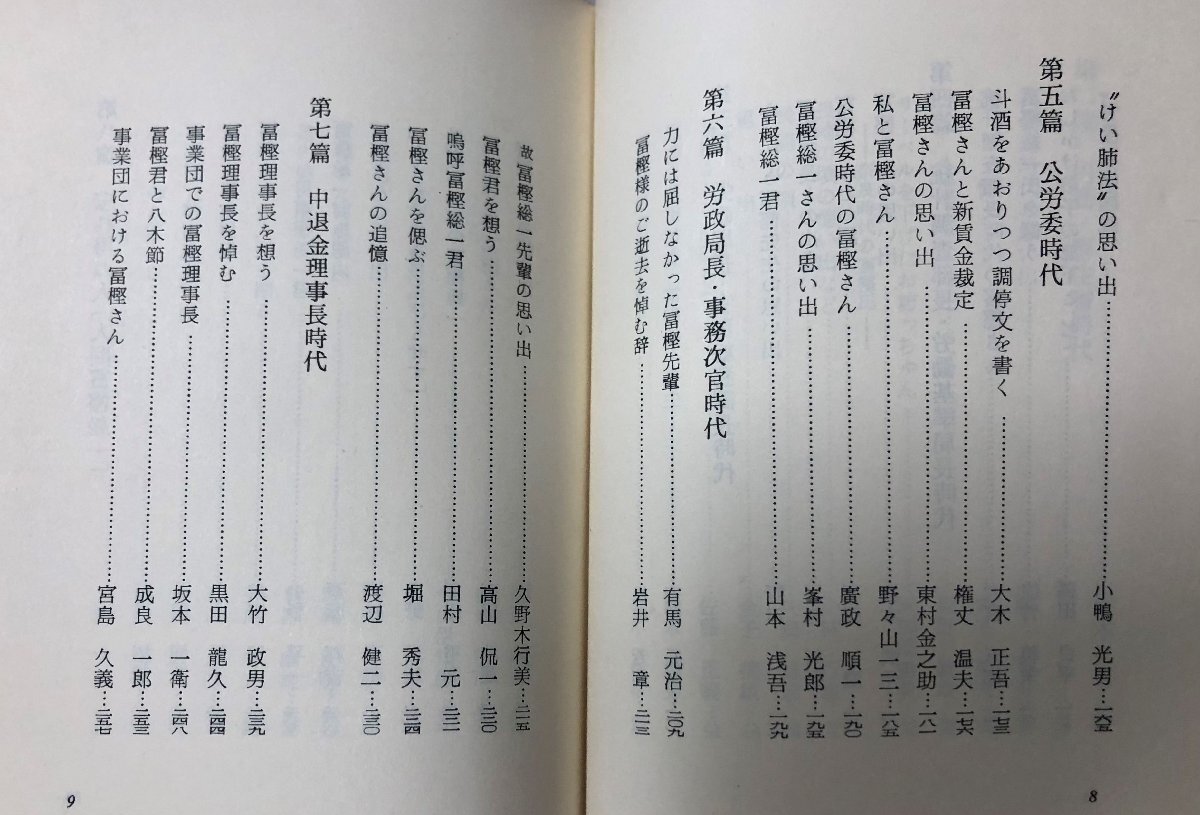 “けい肺法”の思い出……小鴨　光男…一六五
第五篇　公労委時代
斗酒をあおりつつ調停文を書く……大木　正吾…一七三
冨樫さんと新賃金裁定……権丈　温夫…一七六
冨樫さんの思い出……東村金之助…一八一
私と冨樫さん……野々山一三…一八五
公労委時代の冨樫さん……廣政　順一…一九〇
冨樫総一さんの思い出……峯村　光郎…一九五
冨樫総一君……山本　浅吾…一九九
第六篇　労政局長・事務次官時代
力には屈しなかった冨樫先輩……有馬　元治…二〇九
冨樫様のご逝去を悼む辞……岩井　章…二一三
8
故冨樫総一先輩の思い出……久野木行美…二一五
冨樫君を想う……高山　侃一…二二〇
嗚呼冨樫総一君……田村　元…二二二
冨樫さんを偲ぶ……堀　秀夫…二二四
冨樫さんの追憶……渡辺　健二…二三〇
第七篇　中退金理事長時代
冨樫理事長を想う……大竹　政男…二三九
冨樫理事長を悼む……黒田　龍久…二四四
事業団での冨樫理事長……坂本　一衛…二四八
冨樫君と八木節……成良　一郎…二五三
事業団における冨樫さん……宮島　久義…二五七
9